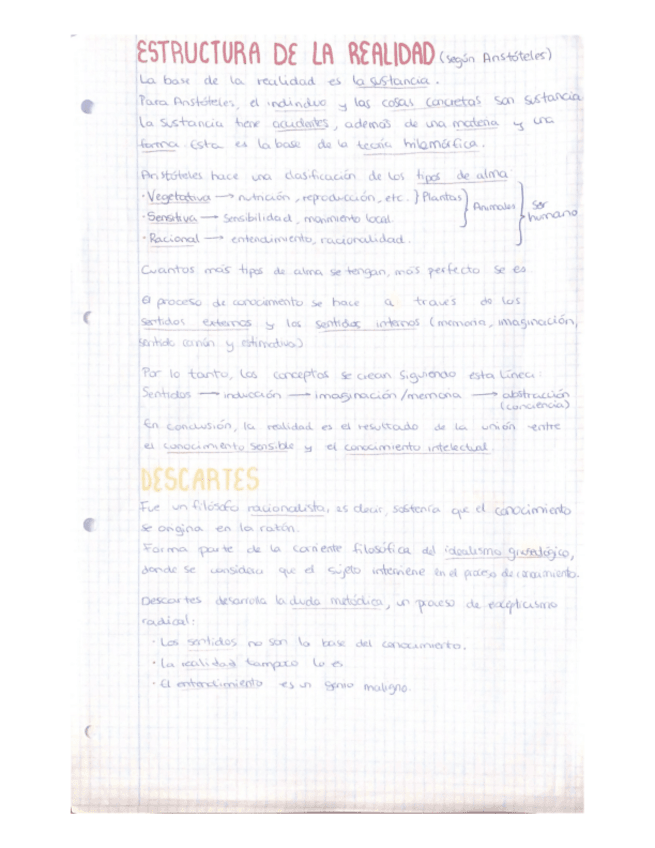 ESTRUCTURA DE LA REALIDAD (según Aristóteles)
La base de la realidad es la sustancia.
Para Aristóteles, el individuo y las cosas concretas son sustancia
La sustancia tiene accidentes, además de una materia y una
forma. Esta es la base de la teoría hilemórfica.
Aristóteles hace una clasificación de los tipos de alma
· Vegetativa → nutrición, reproducción, etc. } Plantas } Animales } Ser humano
· Sensitiva → sensibilidad, movimiento local.
· Racional → entendimiento, racionalidad.
Cuantos más tipos de alma se tengan, más perfecto se es
El proceso de conocimiento se hace a través de los
sentidos externos y los sentidos internos (memoria, imaginación,
sentido común y estimativa)
Por lo tanto, los conceptos se crean siguiendo esta línea:
Sentidos → inducción → imaginación/memoria → abstracción
(conciencia)
En conclusión, la realidad es el resultado de la unión entre
el conocimiento sensible y el conocimiento intelectual.
DESCARTES
Fue un filósofo racionalista, es decir, sostenía que el conocimiento
se origina en la razón.
Forma parte de la corriente filosófica del idealismo gnoseológico,
donde se considera que el sujeto interviene en el proceso de conocimiento.
Descartes desarrolla la duda metódica, un proceso de escepticismo
radical:
· Los sentidos no son la base del conocimiento.
· La realidad tampoco lo es
· El entendimiento es un genio maligno.